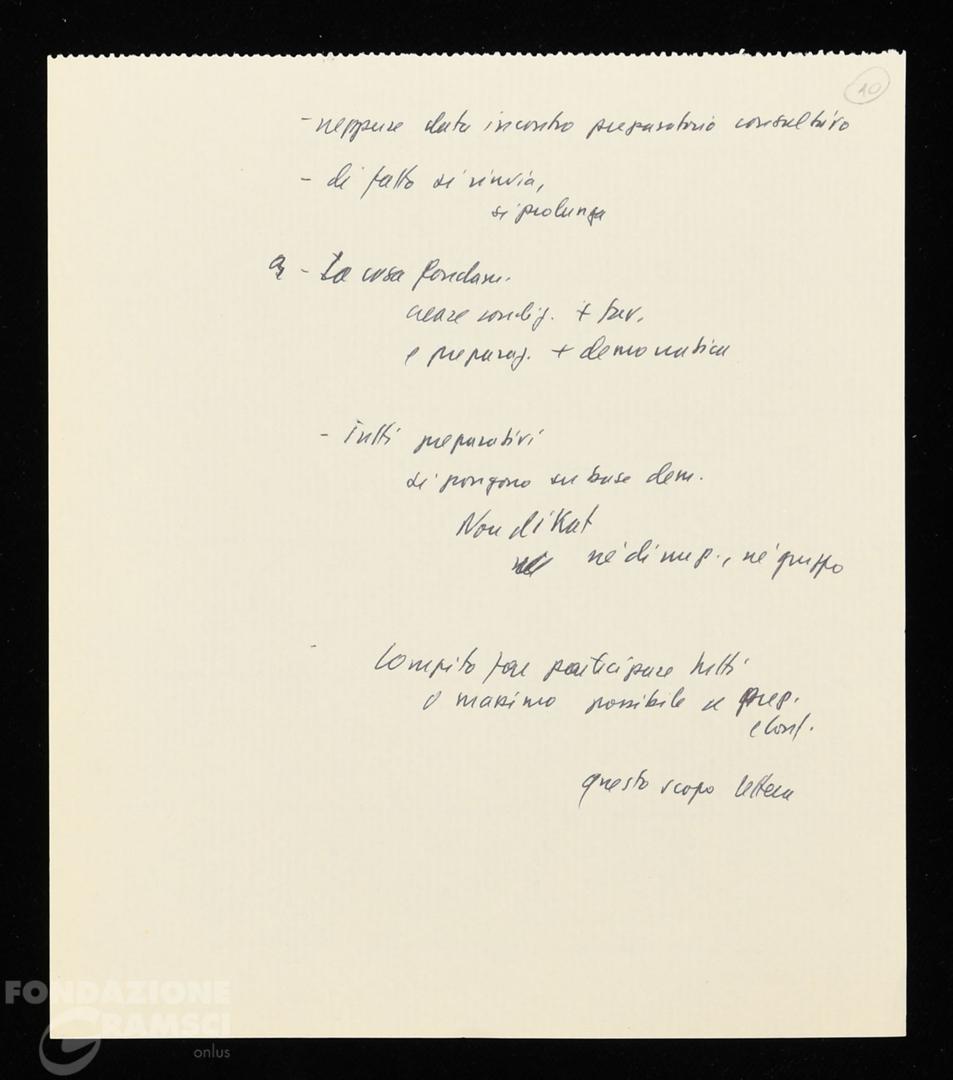 10
- neppure data incontro preparatorio consultivo
- di fatto si rinvia,
si prolunga
- La cosa fondam.
creare condiz. + fav.
e preparaz. + democratica
- Tutti preparativi
si pongono su base dem.
Non diKat
né di nup., né gruppo
Compito fare partecipare tutti
o massimo possibile a prep.
e conf.
questo scopo lettera
FONDAZIONE
GRAMSCI
onlus